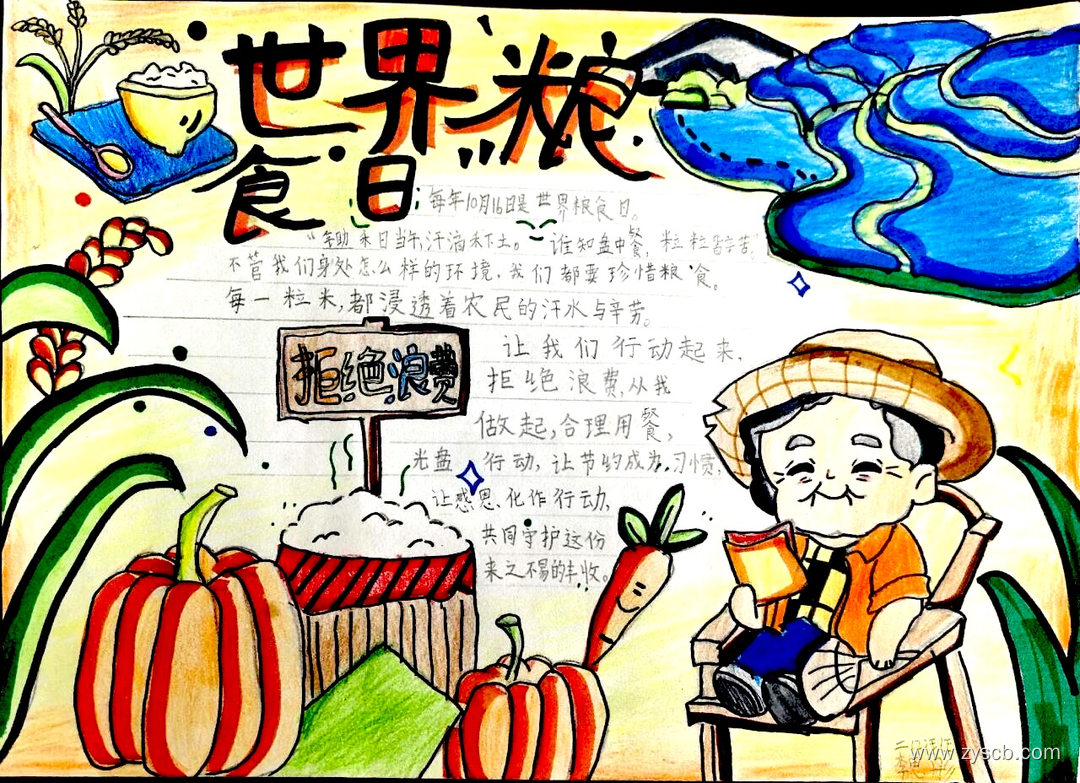 世界粮
食日
每年10月16日是世界粮食日。
“锄禾日当午,汗滴禾下土。 谁知盘中餐,粒粒皆辛苦。
不管我们身处怎么样的环境,我们都要珍惜粮食。
每一粒米,都浸透着农民的汗水与辛劳。
让我们行动起来,
拒绝浪费
拒绝浪费,从我
做起,合理用餐,
光盘 行动,让节约成为习惯,
让感恩化作行动,
共同守护这份
来之不易的丰收。
www.zyscb.com